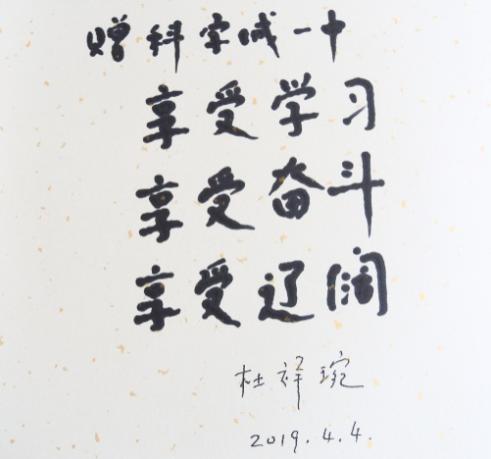 赠科学城一中
享受学习
享受奋斗
享受辽阔
杜祥琬
2019.4.4.